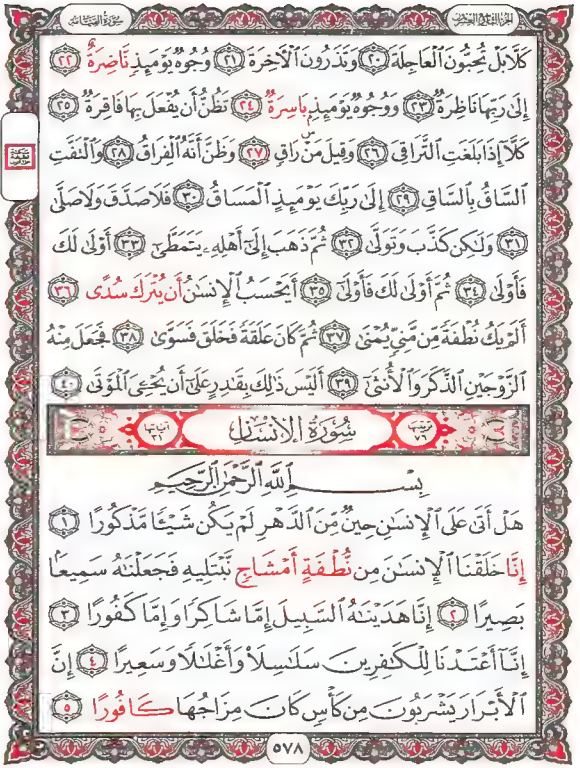 سورة القيامة الجزء التاسع والعشرون
كَلَّا بَلْ تُحِبُّونَ ٱلْعَاجِلَةَ ٢٠ وَتَذَرُونَ ٱلْآخِرَةَ ٢١ وُجُوهٌ يَوْمَئِذٍ نَّاضِرَةٌ ٢٢
إِلَىٰ رَبِّهَا نَاظِرَةٌ ٢٣ وَوُجُوهٌ يَوْمَئِذٍۭ بَاسِرَةٌ ٢٤ تَظُنُّ أَن يُفْعَلَ بِهَا فَاقِرَةٌ ٢٥
كَلَّا إِذَا بَلَغَتِ ٱلتَّرَاقِيَ ٢٦ وَقِيلَ مَنْ ۜ رَاقٍ ٢٧ وَظَنَّ أَنَّهُ ٱلْفِرَاقُ ٢٨ وَٱلْتَفَّتِ
ٱلسَّاقُ بِٱلسَّاقِ ٢٩ إِلَىٰ رَبِّكَ يَوْمَئِذٍ ٱلْمَسَاقُ ٣٠ فَلَا صَدَّقَ وَلَا صَلَّىٰ
٣١ وَلَٰكِن كَذَّبَ وَتَوَلَّىٰ ٣٢ ثُمَّ ذَهَبَ إِلَىٰٓ أَهْلِهِۦ يَتَمَطَّىٰٓ ٣٣ أَوْلَىٰ لَكَ
فَأَوْلَىٰ ٣٤ ثُمَّ أَوْلَىٰ لَكَ فَأَوْلَىٰٓ ٣٥ أَيَحْسَبُ ٱلْإِنسَٰنُ أَن يُتْرَكَ سُدًى ٣٦
أَلَمْ يَكُ نُطْفَةً مِّن مَّنِيٍّ يُمْنَىٰ ٣٧ ثُمَّ كَانَ عَلَقَةً فَخَلَقَ فَسَوَّىٰ ٣٨ فَجَعَلَ مِنْهُ
ٱلزَّوْجَيْنِ ٱلذَّكَرَ وَٱلْأُنثَىٰٓ ٣٩ أَلَيْسَ ذَٰلِكَ بِقَٰدِرٍ عَلَىٰٓ أَن يُحْـِۧىَ ٱلْمَوْتَىٰ ٤٠
ترتيبها ٧٦ سُورَةُ الإِنسَانِ آياتها ٣١
بِسْمِ ٱللَّهِ ٱلرَّحْمَٰنِ ٱلرَّحِيمِ
هَلْ أَتَىٰ عَلَى ٱلْإِنسَٰنِ حِينٌ مِّنَ ٱلدَّهْرِ لَمْ يَكُن شَيْـًٔا مَّذْكُورًا ١
إِنَّا خَلَقْنَا ٱلْإِنسَٰنَ مِن نُّطْفَةٍ أَمْشَاجٍ نَّبْتَلِيهِ فَجَعَلْنَٰهُ سَمِيعًۢا
بَصِيرًا ٢ إِنَّا هَدَيْنَٰهُ ٱلسَّبِيلَ إِمَّا شَاكِرًا وَإِمَّا كَفُورًا ٣
إِنَّآ أَعْتَدْنَا لِلْكَٰفِرِينَ سَلَٰسِلَا۟ وَأَغْلَٰلًا وَسَعِيرًا ٤ إِنَّ
ٱلْأَبْرَارَ يَشْرَبُونَ مِن كَأْسٍ كَانَ مِزَاجُهَا كَافُورًا ٥
٥٧٨